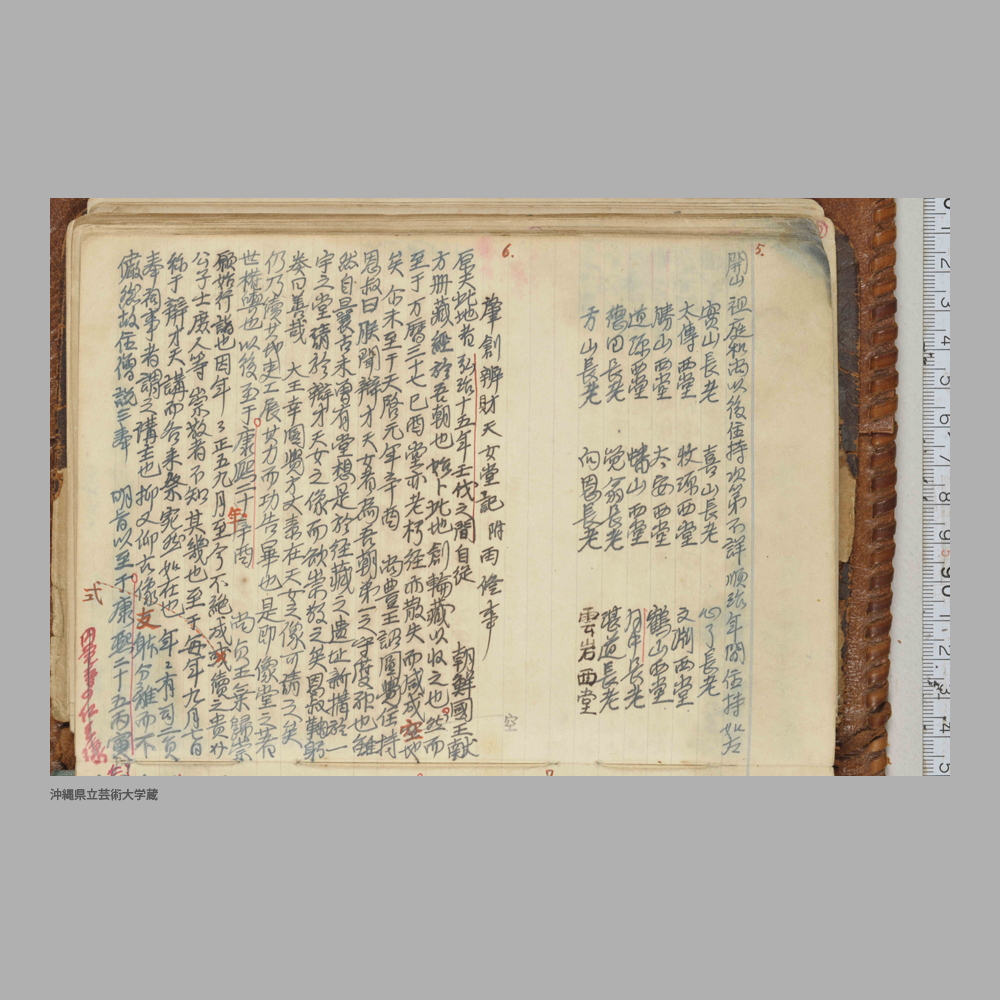 5.
開山祖庭和尚以後住持次第不詳順強年間住持如左
實山長老 喜山長老 心了長老
大傳西堂 牧源西堂 文淵西堂
勝山西堂 大安西堂 鶴山西堂
道源西堂 蟠山西堂 月中長老
德田長老 覚翁長老 堪道長老
芳山長老 向恩長老 雲岩西堂
空
6.
肇創辨財天女堂記 附雨作事
厥此地者弘治十五年壬戌之間自從 朝鮮國王献
方册藏經於吾朝也始卜此地創輪藏以収之也然而
至于万曆三十七己酉堂亦老朽経亦散失而減成空地
矣尓来至于天啓元年辛酉 尚豊王詔圓覺住持
恩叔曰朕聞辯才天女者為吾朝第一之守護神也雖
然自曩古未曽有堂想是於経藏之遺址新搆於一
宇之堂請於辯才天女之像而欲崇敬之矣恩叔鞠躬
奏曰善哉 大王幸圓覺方丈奉在天女之像可請之矣
仍乃俾 工展其力而功告畢也是即像堂之
世權輿也以後至于康熙二十年辛酉 尚貞王
願始行 也因年々正五九月至今不絶
公子士庶人等崇敬者不知其幾也至于毎年九月七日
称于辯才天講而合来祭宛然如在也年々有司三員
奉 事者謂之講主也抑又仰 像支 分離而不
儼然故住僧説三奉 明旨以至于康熙二十五丙寅
式
沖縄県立芸術大学蔵